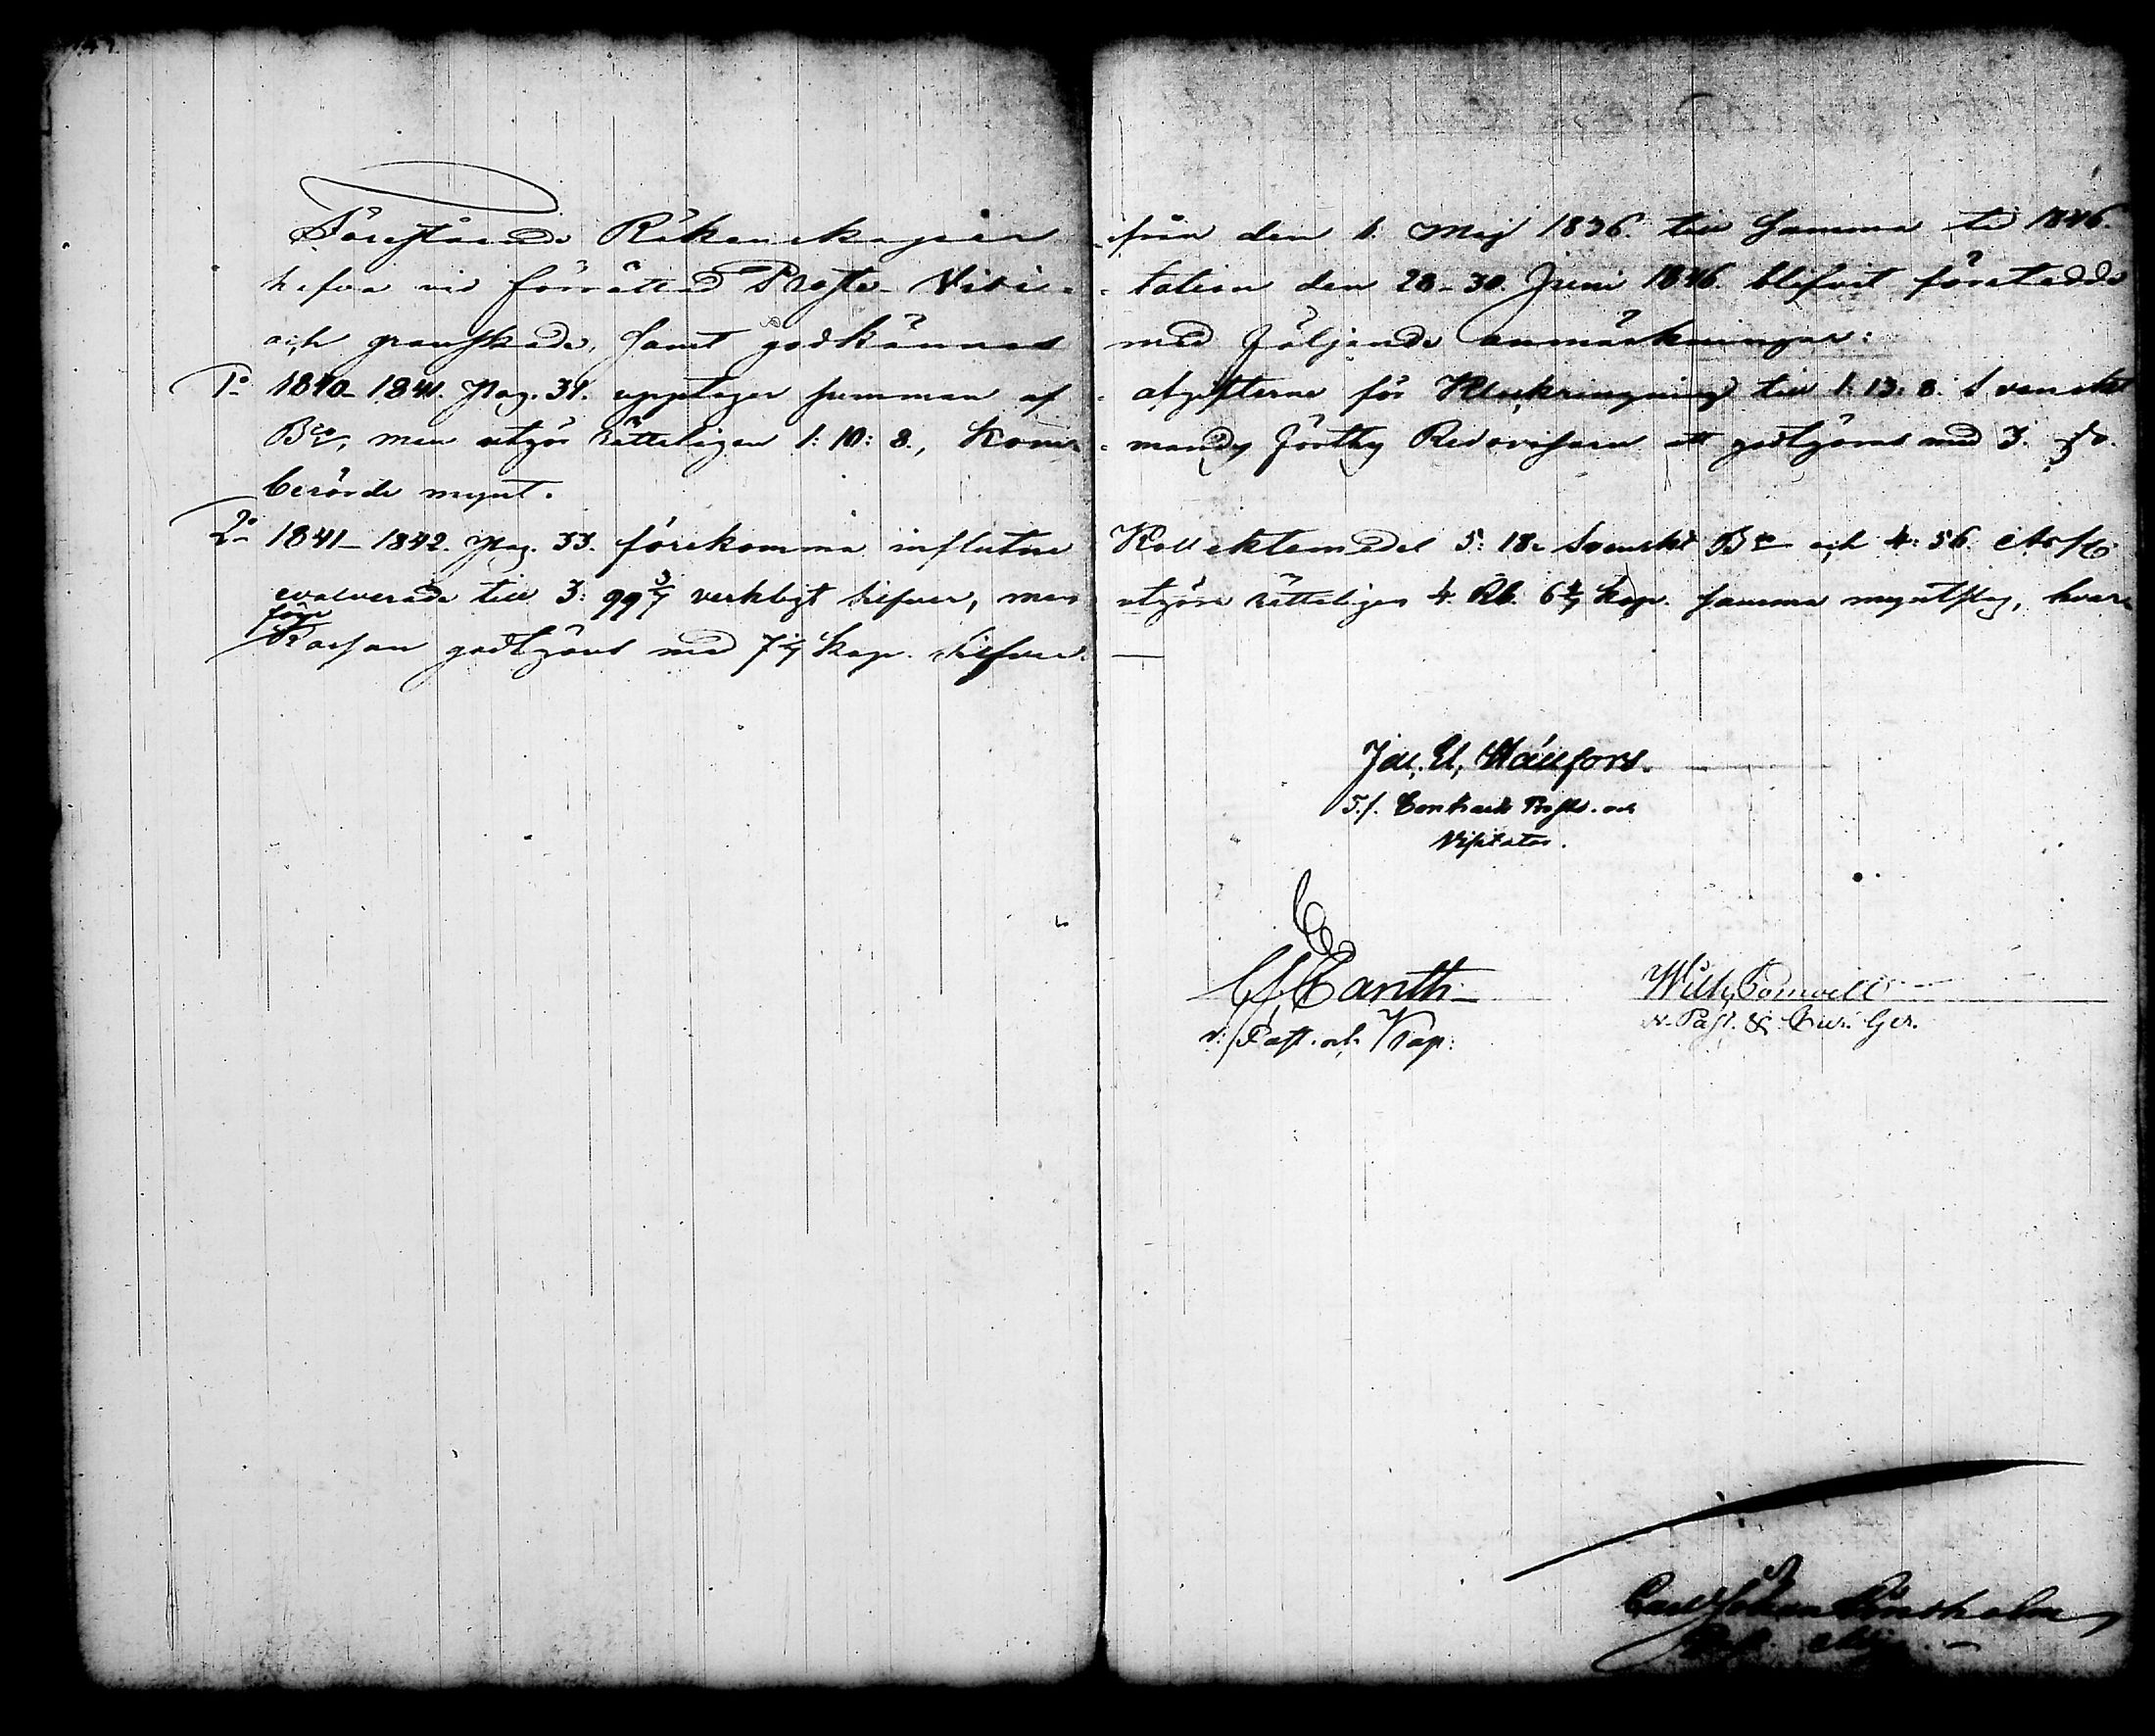 Förestående Räkenskaper från den 1. Maj 1836. till samma tid 1846.
hafva vid förrättad Proste-Visi- tation den 28-30. Juni 1846. blifvit företedde
och granskade, samt godkännas med följande anmärkningar:
1o 1840-1841. Pag. 31. upptages summan af afgifterne för Klockringning till 1: 13: 8. Svenskt
Bco, men utgör rätteligen 1: 10: 8., kom- mandes förthy Redovisaren att godtgöras med 3. sk.
berörde mynt.
2o 1841-1842. Pag. 33. förekomma influtne Kollektemedel 5: 18. Svenskt Bco och 4: 56.
evalverade till 3: 99 3/7 verkligt silfver, men utgöra rätteligen 4. Rb. 6 4/7 kop. samma myntslag, hvar-
före Kassan godtgöres med 7 1/7 kop. silfver. —
Jac. U. Wallfors.
T.f. Contracts Prost. och
Visitator.
Canth
v: Past. och Kap:
Wilh.
v. Past. &
Carl Johan